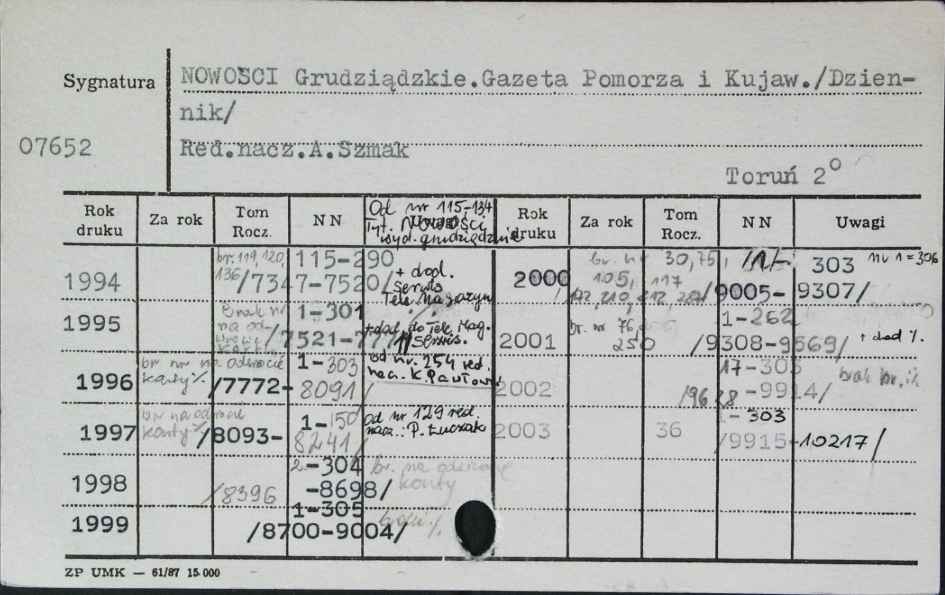 Sygnatura
NOWOŚCI Grudziądzkie.Gazeta Pomorza i Kujaw./Dzien-
nik/
07652
Red.nacz.A.Szmak
Toruń 2°
Rok druku Za rok Tom Rocz. NN Od nr 115-134 Tyt. Nowości wyd. grudziądzkie Rok druku Za rok Tom Rocz. NN Uwagi
1994 br. 119, 120, 136 /7347-7520/ 115-290 + dod. Serwis Tele Magazyn
1995 /7521-777 1-301 + dod. do Tele Mag. Serwis.
1996 br nr na odwrocie karty % /7772-8091/ 1-303 od nr. 254 red. nacz. K.
1997 br na odwrocie karty % /8093-8241/ 1-150 Od nr 129 red. nacz.: P. Łuczak
1998 2-304 /8396-8698/ br. na odwrocie karty
1999 1-305 /8700-9004/
2000 br. nr 30,75, 105, 117 /9005-9307/ 303 nr 1=306
2001 br. nr 76 250 1-262 /9308-9569/ + dod %.
2002 17-303 /9628-9914/ brak nr. %
2003 36 1-303 /9915-10217/
ZP UMK — 61/87 15 000